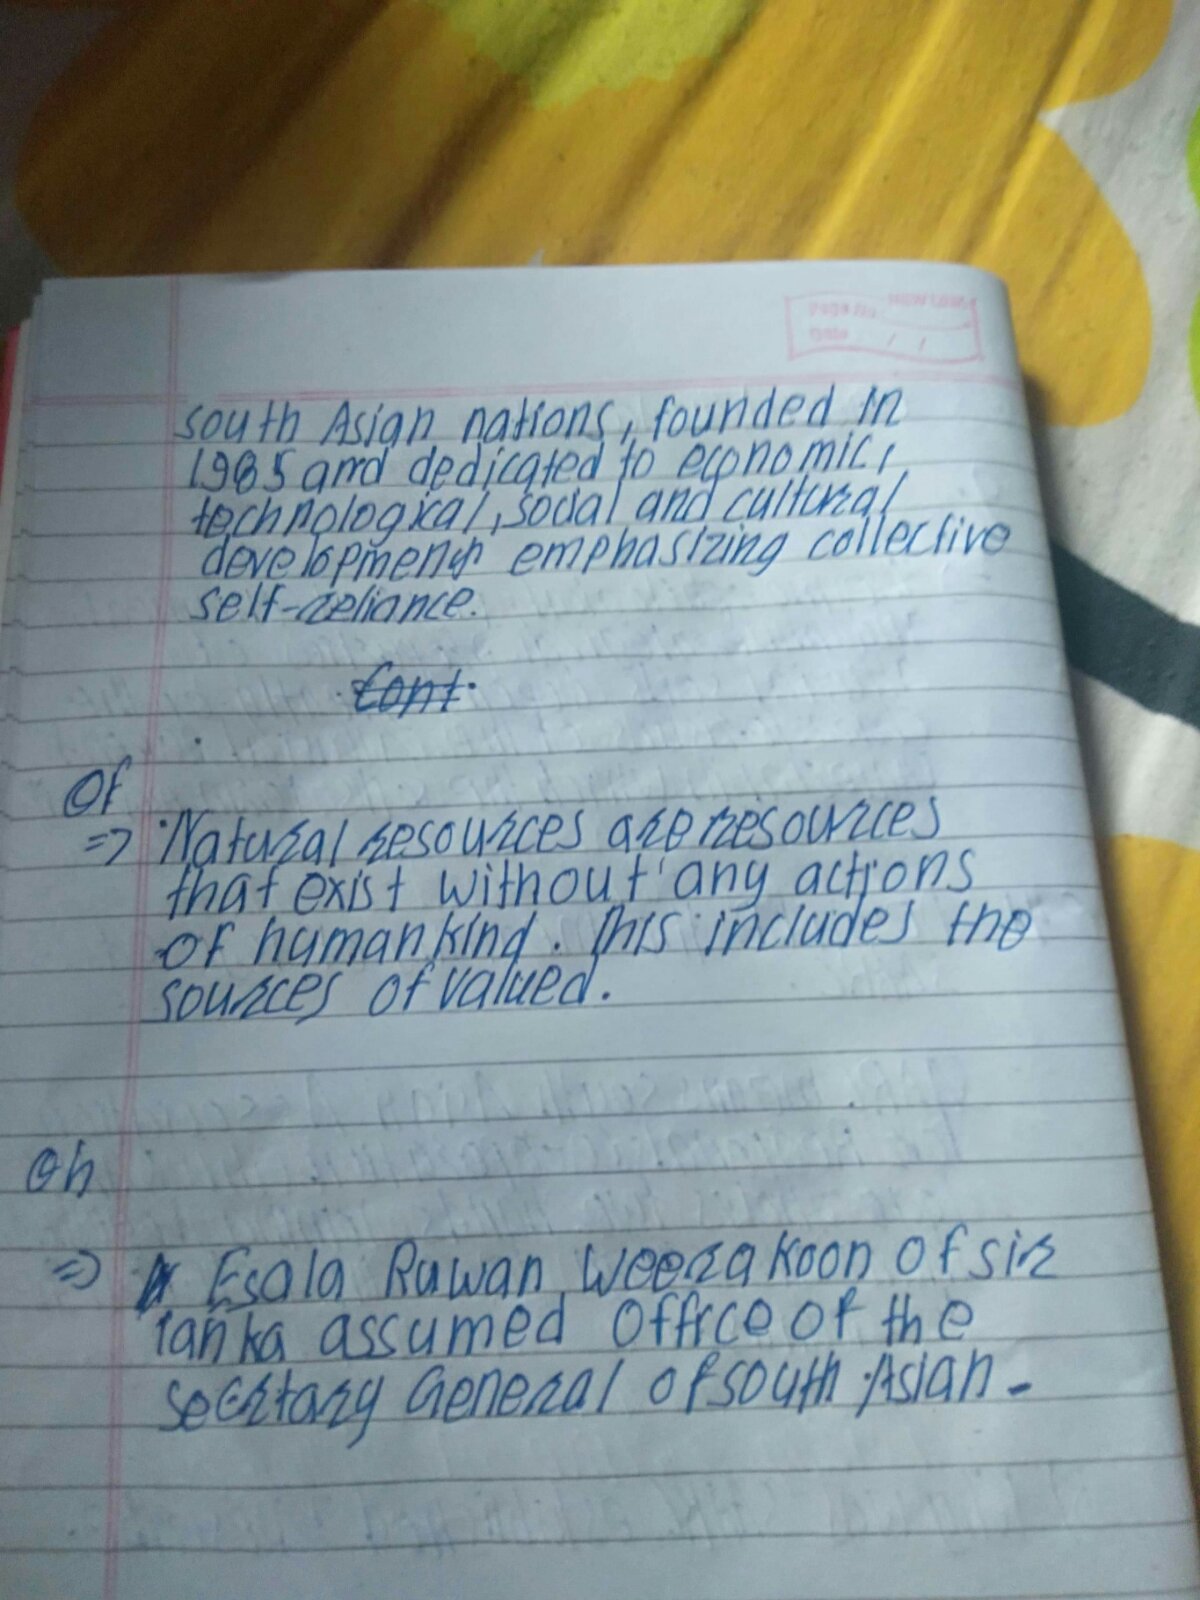 south Asian nations, founded in
1985 and dedicated to economic,
technological, social and cultural
development emphasizing collective
self-reliance.
Cont.
Of
=> Natural resources are resources
that exist without any actions
of humankind. This includes the
sources of valued.
Oh
=> Esala Ruwan Weerakoon of sir
lanka assumed office of the
secrtary General of south Asian.